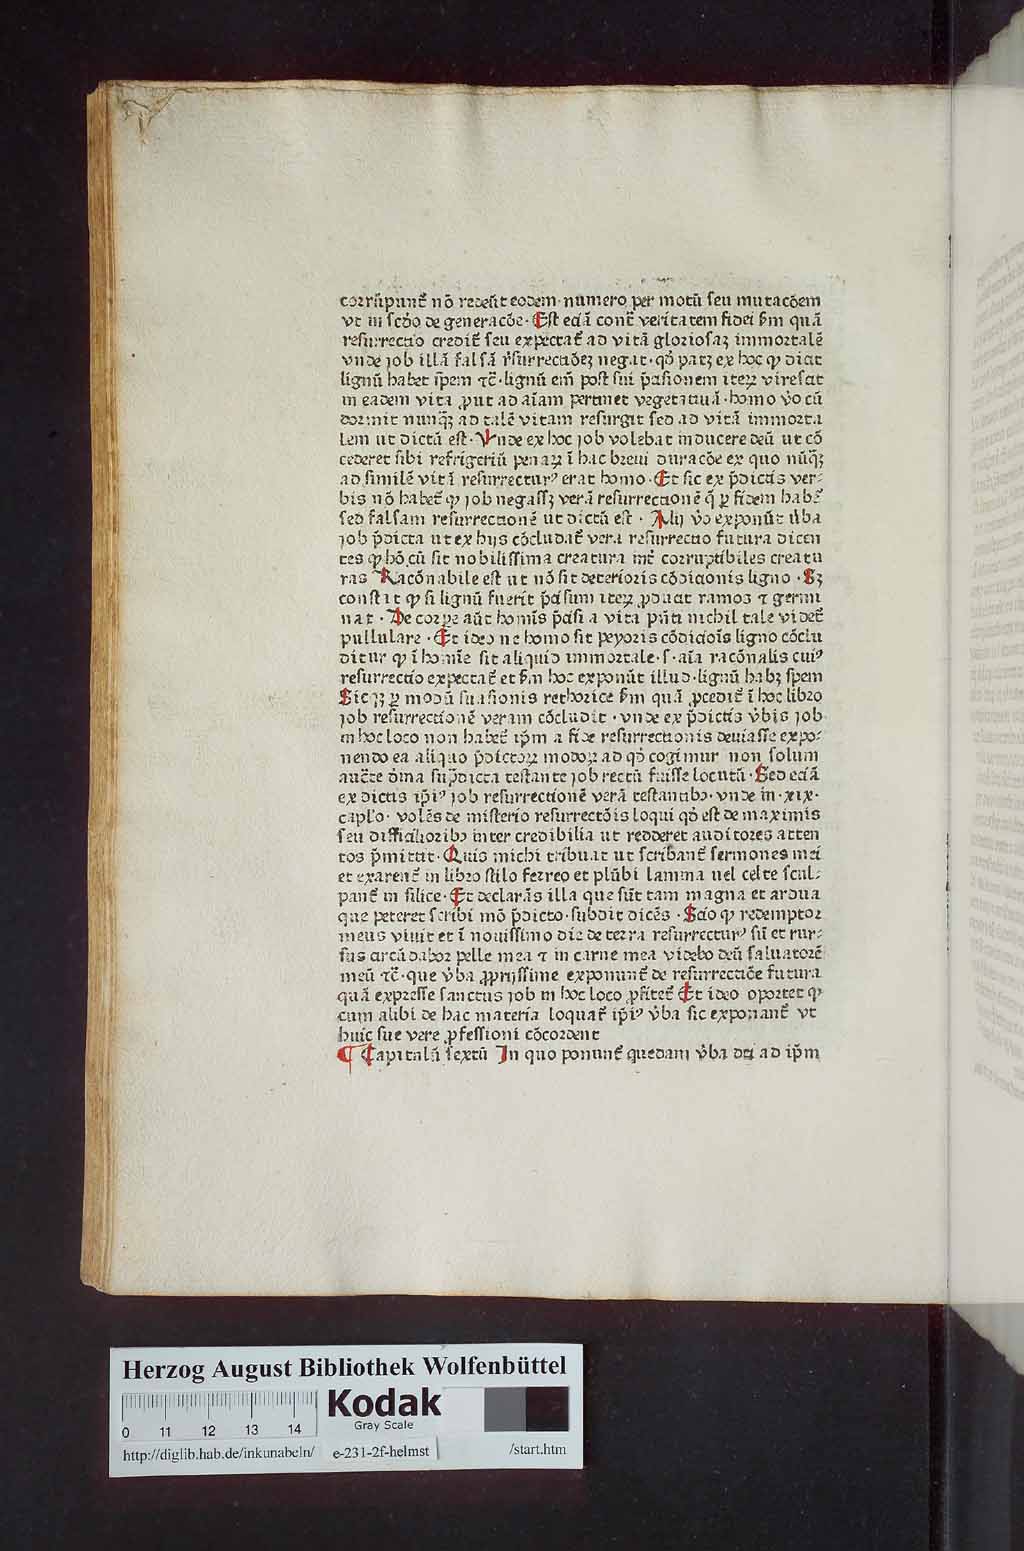 corrũpunt᷑ nõ redeũt eodem· numero per motũ seu mutacõem
vt in scðo de generacõe· Est eciã cont᷑ veritatem fidei ẜm quã
resurrectio credit᷑ seu expectat᷑ ad vitã gloriosaꝫ immortalẽ
vnde job illã falsã r̃surrectiõeꝫ negat· qð patꝫ ex hoc ꝙ dicit
lignũ habet s̃pem ⁊c̃· lignũ em̃ post sui p̃cisionem iteꝝ virescit
in eadem vita ꝓut ad aĩam pertinet vegetatiuã· homo v̊o cũ
dormit nunqͣꝫ ad talẽ vitam resurgit sed ad vitã immorta
lem ut dictũ est· Vnde ex hoc job volebat inducere deũ ut cõ
cederet sibi refrigeriũ penaꝝ ĩ hac breui duracõe ex quo nũqͣꝫ
ad similẽ vitã resurrecturꝰ erat homo· Et sic ex p̃dictis ver-
bis nõ habet᷑ ꝙ job negassꝫ verã resurrectionẽ q̃ ꝑ fidem habet᷑
sed falsam resurrectionẽ ut dictũ est · Alij v̊o exponũt v̊ba
job p̃dicta ut ex hijs cõcludat᷑ vera resurrectio futura dicen
tes ꝙ hõ cũ sit nobilissima creatura int᷑ corruptibiles creatu
ras Racõnabile est ut nõ sit deterioris cõdicionis ligno · Sꝫ
constit ꝙ si lignũ fuerit p̃cisum iteꝝ ꝓducit ramos ⁊ germi
nat · De corpe aũt homĩs p̃cisi a vita p̃nti nichil tale videt᷑
pullulare · Et ideo ne homo sit peyoris cõdicioĩs ligno cõclu
ditur ꝙ ĩ homĩe sit aliquid immortale· s· aĩa racõnalis cuiꝰ
resurrectio expectat᷑ et ẜm hoc exponũt illud· lignũ habꝫ spem
Sic ꝫꝫ ꝑ modũ suasionis rethorice ẜm quã ꝓcedit᷑ ĩ hoc libro
job resurrectionẽ veram cõcludit · vnde ex p̃dictis v̊bis job
in hoc loco non habet᷑ ip̃m a fide resurrectionis deuiasse expo-
nendo ea aliquo p̃dictoꝝ modoꝝ ad qð cogimur non solum
auct̃e d̃ma sup̃dicta testante job rectũ fuisse locutũ· Sed eciã
ex dictis ip̃iꝰ job resurrectionẽ verã testantibꝰ· vnde in ·xix·
cap̃lo· volẽs de misterio resurrectõis loqui qð est de maximis
seu difficilioribꝰ inter credibilia ut redderet auditores atten
tos p̃mittit· Quis michi tribuat ut scribant᷑ sermones mei
et exarent᷑ in libro stilo ferreo et plũbi lamina uel celte scul-
pant᷑ in silice· Et declarãs illa que sũt tam magna et ardua
que peteret scribi mõ p̃dicto· subdit dicẽs · Scio ꝙ redemptor
meus viuit et ĩ nouissimo die de terra resurrecturꝰ sũ et rur-
sus circũdabor pelle mea ⁊ in carne mea videbo deũ saluatorẽ
meũ ⁊c̃· que v̊ba ꝓprijssime exponunt᷑ de resurrectiõe futura
quã expresse sanctus job in hoc loco ꝓfitet᷑ Et ideo oportet ꝙ
cum alibi de hac materia loquat᷑ ip̃iꝰ v̊ba sic exponant᷑ vt
huic sue vere ꝓfessioni cõcordent
¶ Capitulũ sextũ In quo ponunt᷑ quedam v̊ba dei ad ip̃m
Herzog August Bibliothek Wolfenbüttel
Kodak
Gray Scale
0 11 12 13 14
http://diglib.hab.de/inkunabeln/ e-231-2f-helmst /start.htm